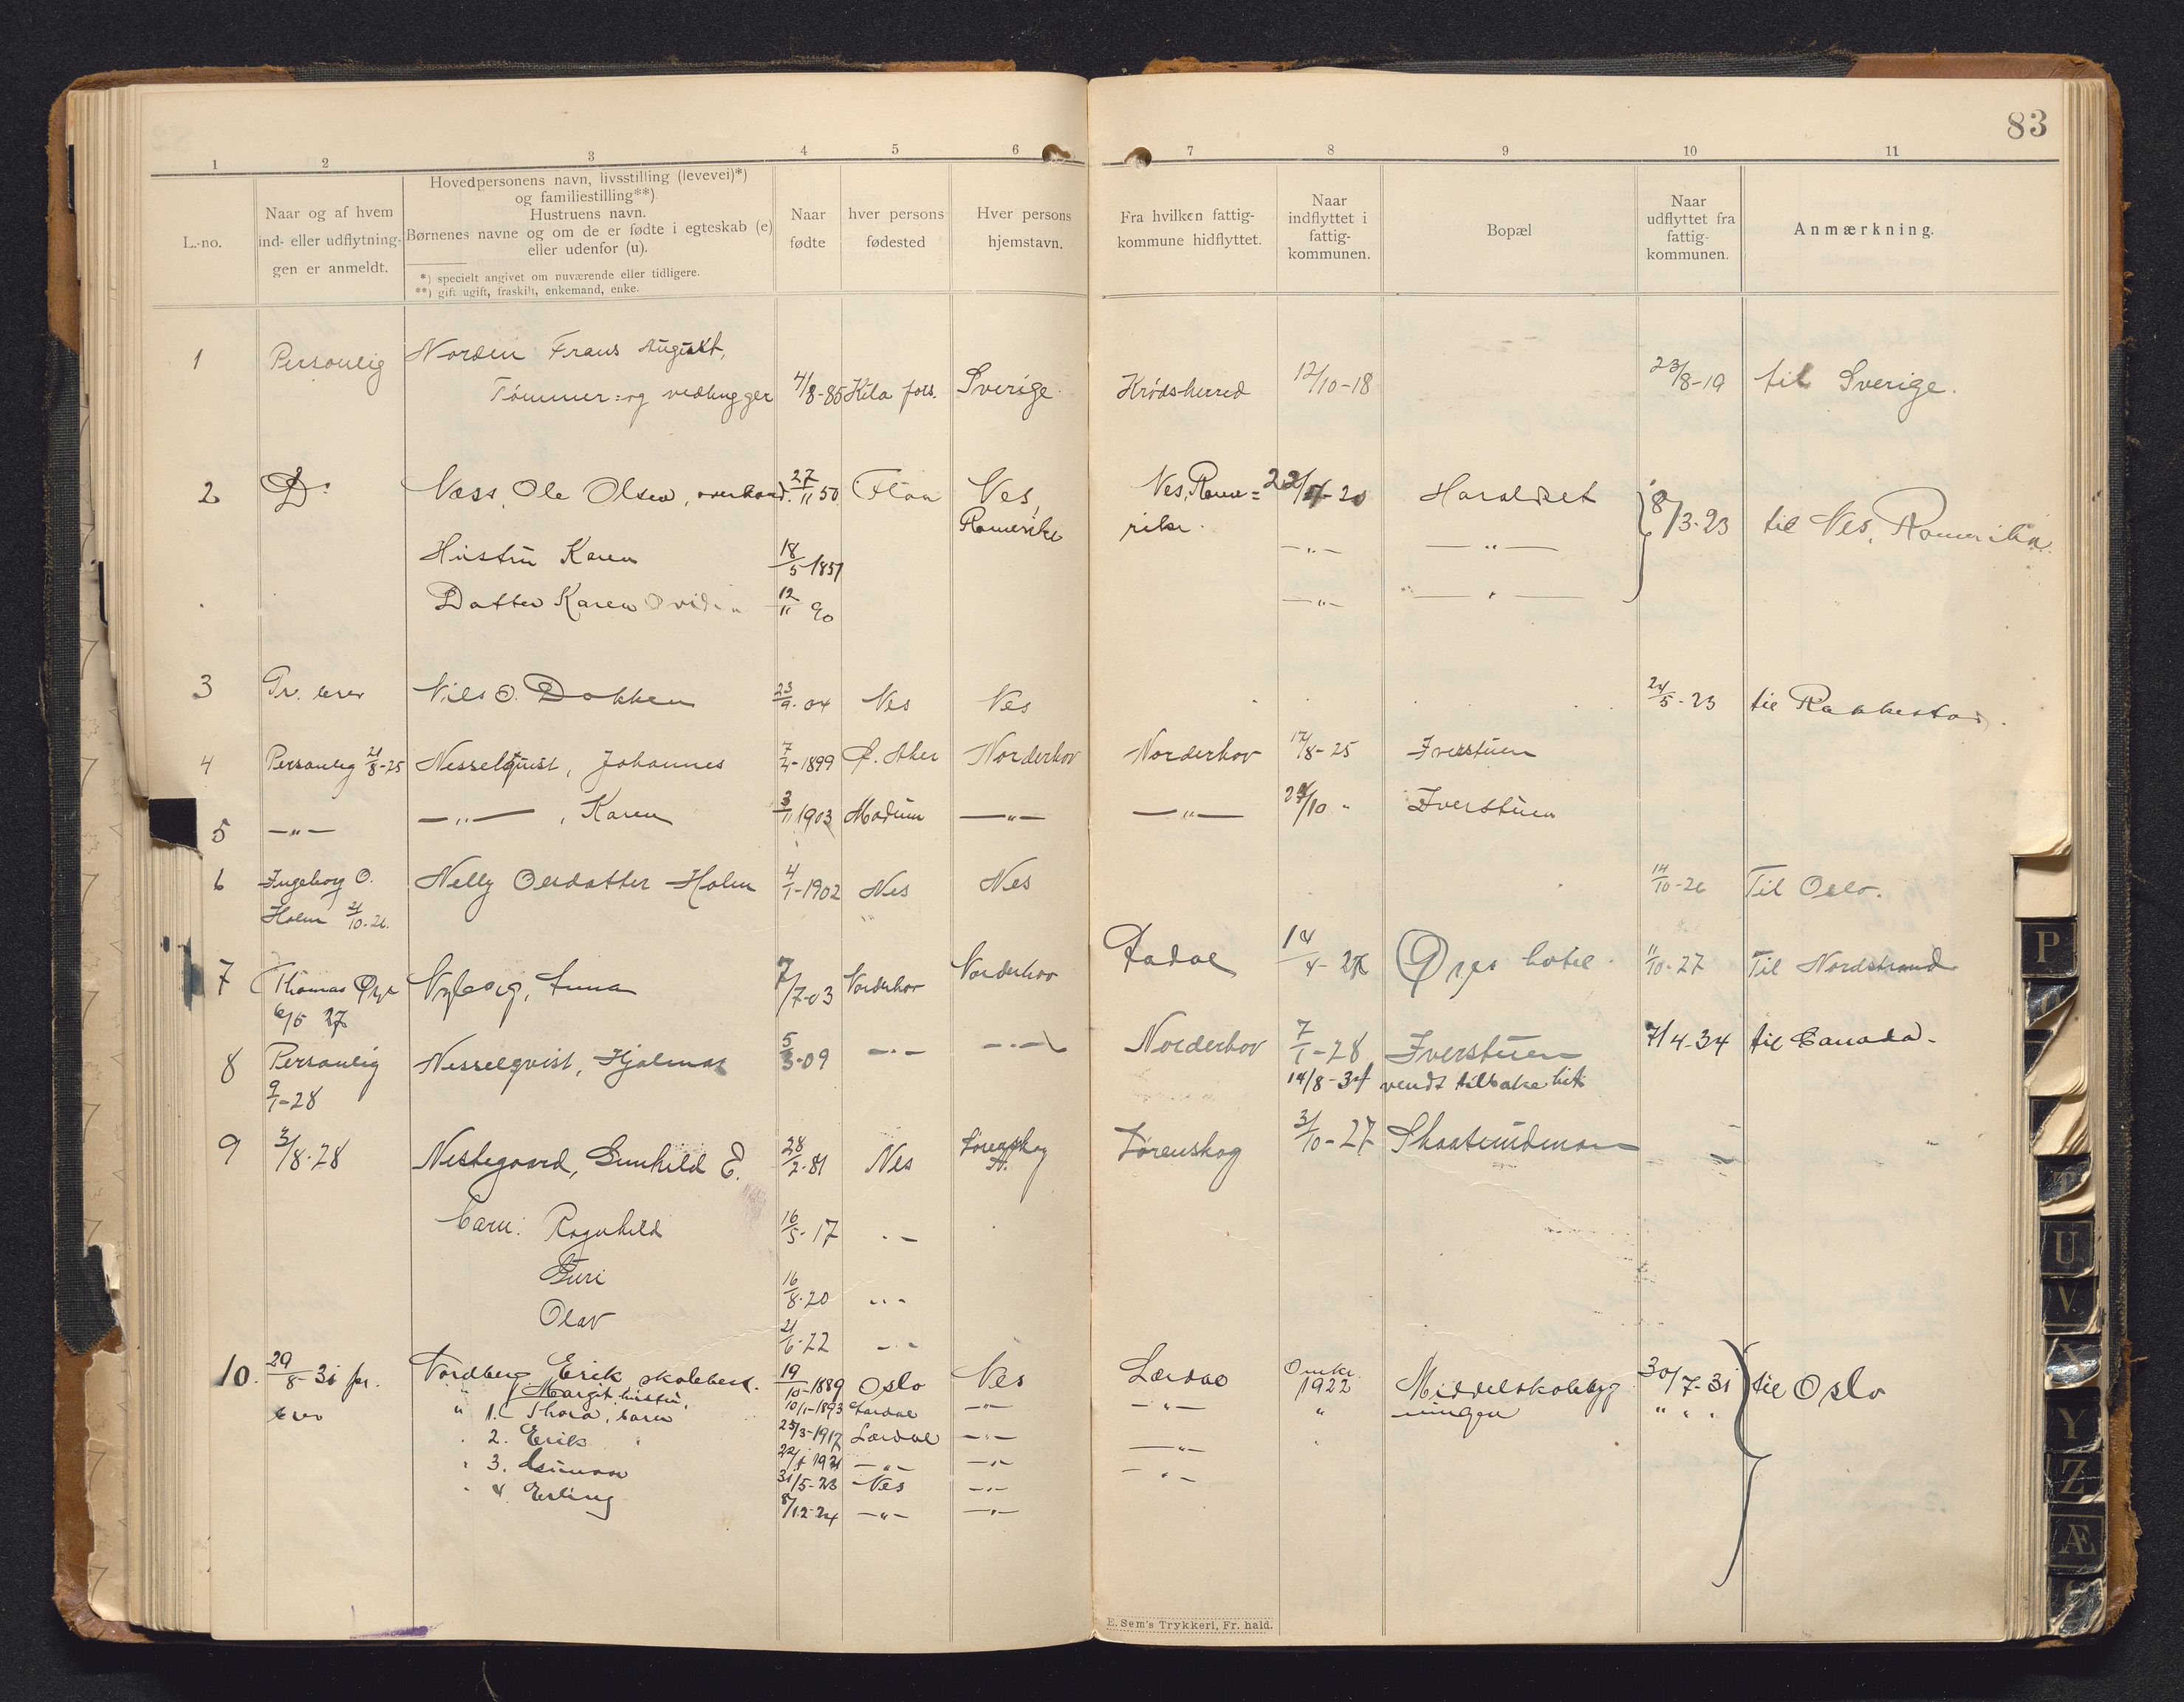 83
1 2 3 4 5 6 7 8 9 10 11
L.-no.
Naar og af hvem
ind- eller udflytnin-
gen er anmeldt.
Hovedpersonens navn, livsstilling (levevei)*)
og familiestilling**)
Hustruens navn.
Børnenes navne og om de er fødte i egteskab (e)
eller udenfor (u).
*) specielt angivet om nuværende eller tidligere.
**) gift ugift, fraskilt, enkemand, enke.
Naar
fødte
hver persons
fødested
Hver persons
hjemstavn.
Fra hvilken fattig-
kommune hidflyttet.
Naar
indflyttet i
fattig-
kommunen.
Bopæl
Naar
udflyttet fra
fattig-
kommunen.
Anmærkning.
1 Personlig Norden Frans August,
Tømmer= og vedhugger 4/8-85 Kila fors. Sverige Krødsherred 12/10-18 23/8-19 til Sverige.
2 Do Næss, Ole Olsen, 27/11 50 Flaa Ves, Romerike Ves, Rome=rike. 20 Haraldset 8/3-23 til Ves, Romerike
Hustru Karen 18/5 1851 —"— —"—
Datter Karen 12/11 90 —"— —"—
3 Pr. brev Nils O. Dokken 23/9-04 Nes Nes 24/5-23 til Rakkestad.
4 Personlig 21/8-25 Nesselquist, Johannes 7/4-1899 Ø. Aker Norderhov Norderhov 17/8-25 Iverstuen
5 —"— —"—, Karen 3/11 1903 Modum —"— —"— /10 " Iverstuen
6 Ingeborg O. Nelly Olsdatter Holm 4/1-1902 Nes Nes 14/10-26 Til Oslo.
Holm 21/10-26.
7 Thomas Nyborg, Anna 7/7-03 Norderhov Norderhov Aadal 14/4-27 hotel 11/10-27 Til Nordstrand
6/5 27
8 Personlig Nesselqvist, Hjalmar 5/3-09 —"— —"— Norderhov 7/1-28 Iverstuen 7/4-34 til Canada-
9/1-28 14/8-34 vendt tilbake hit
9 3/8-28 Nestegaard, Gunhild E. 28/2-81 Nes Lørenskog Lørenskog 3/10-27
barn: Ragnhild 16/5-17 "-
Guri 16/8-20 "-
Olav 21/6-22 -"-
10. 29/8-31 pr. Nordberg Erik skolebest. 19/10-1889 Oslo Nes Lærdal Omkr. 1922 Middelskolebyg- 30/7-31 til Oslo
brev " Margit hustru, 10/1-1893 Lærdal —"— —"— " ningen " " "
" 1. Thora, barn 25/3-1917 Lærdal —"—
" 2. Erik " 1921 —"— —"— —"—
" 3. 31/5-23 Nes —"— —"—
" 4. Erling 8/12-24 —"— —"—
E. Sem's Trykkeri, Fr. hald.
P
T
U
V
X
Y
Z
Æ